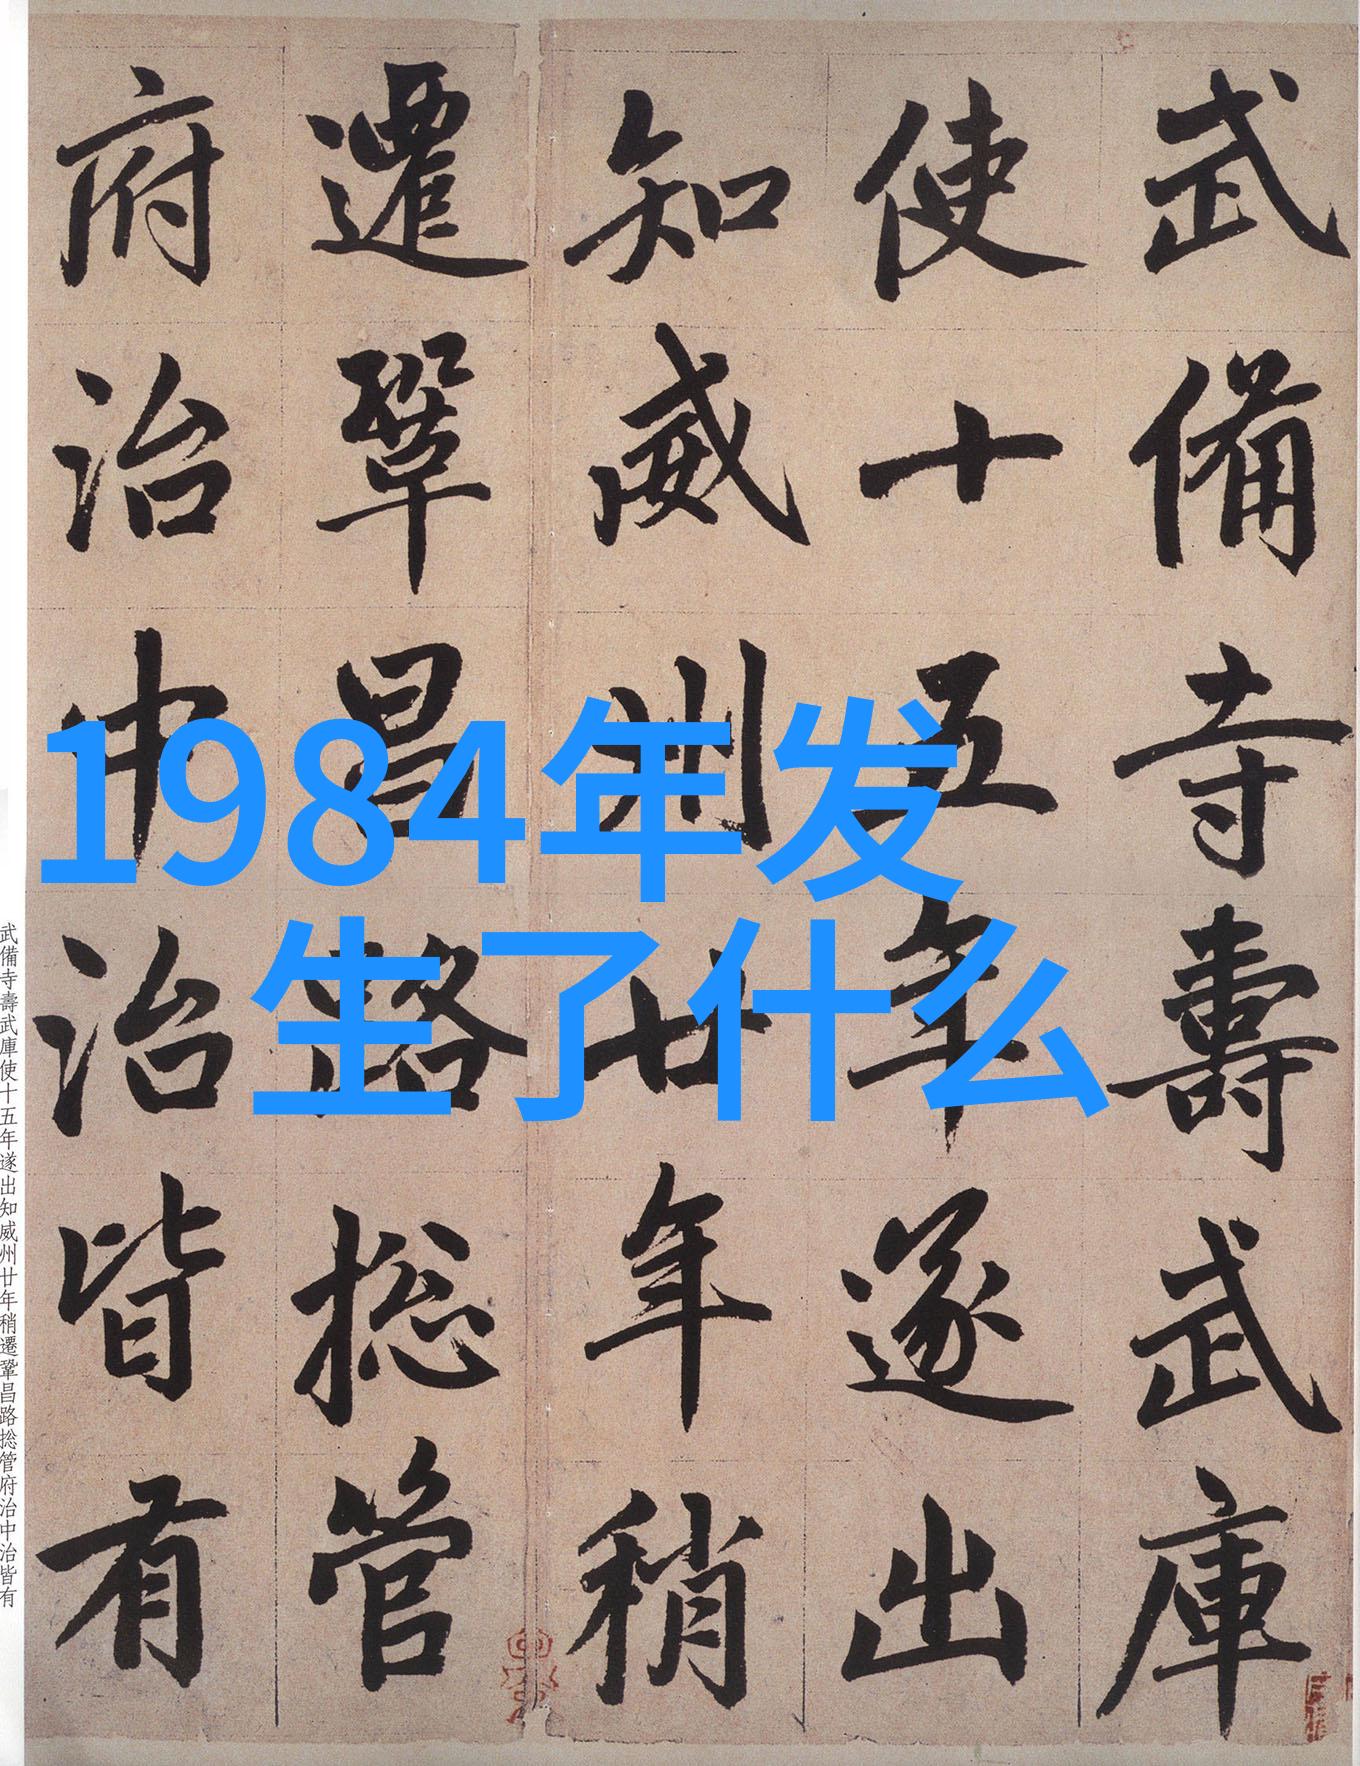 武備寺壽武庫
使十五年遂出
知威州廿年稍
遷鞏昌路捴管
府治中治皆有
1984年发
生了什么
武備寺壽武庫使十五年遂出知威州廿年稍遷鞏昌路捴管府治中治皆有